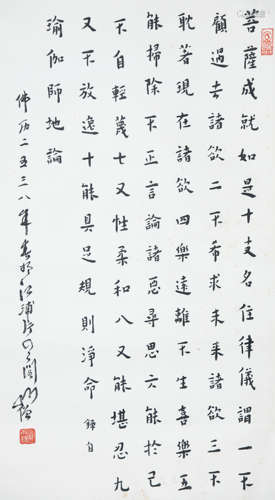 菩薩成就如是十支名住律儀謂一不
顧過去諸欲二不希求未来諸欲三不
耽著現在諸欲四樂遠離不生喜樂五
能掃除不正言論諸惡尋思六能於己
不自輕蔑七又性柔和八又能堪忍九
又不放逸十能具足規則淨命 錄自
瑜伽師地論
佛历二五三八年春